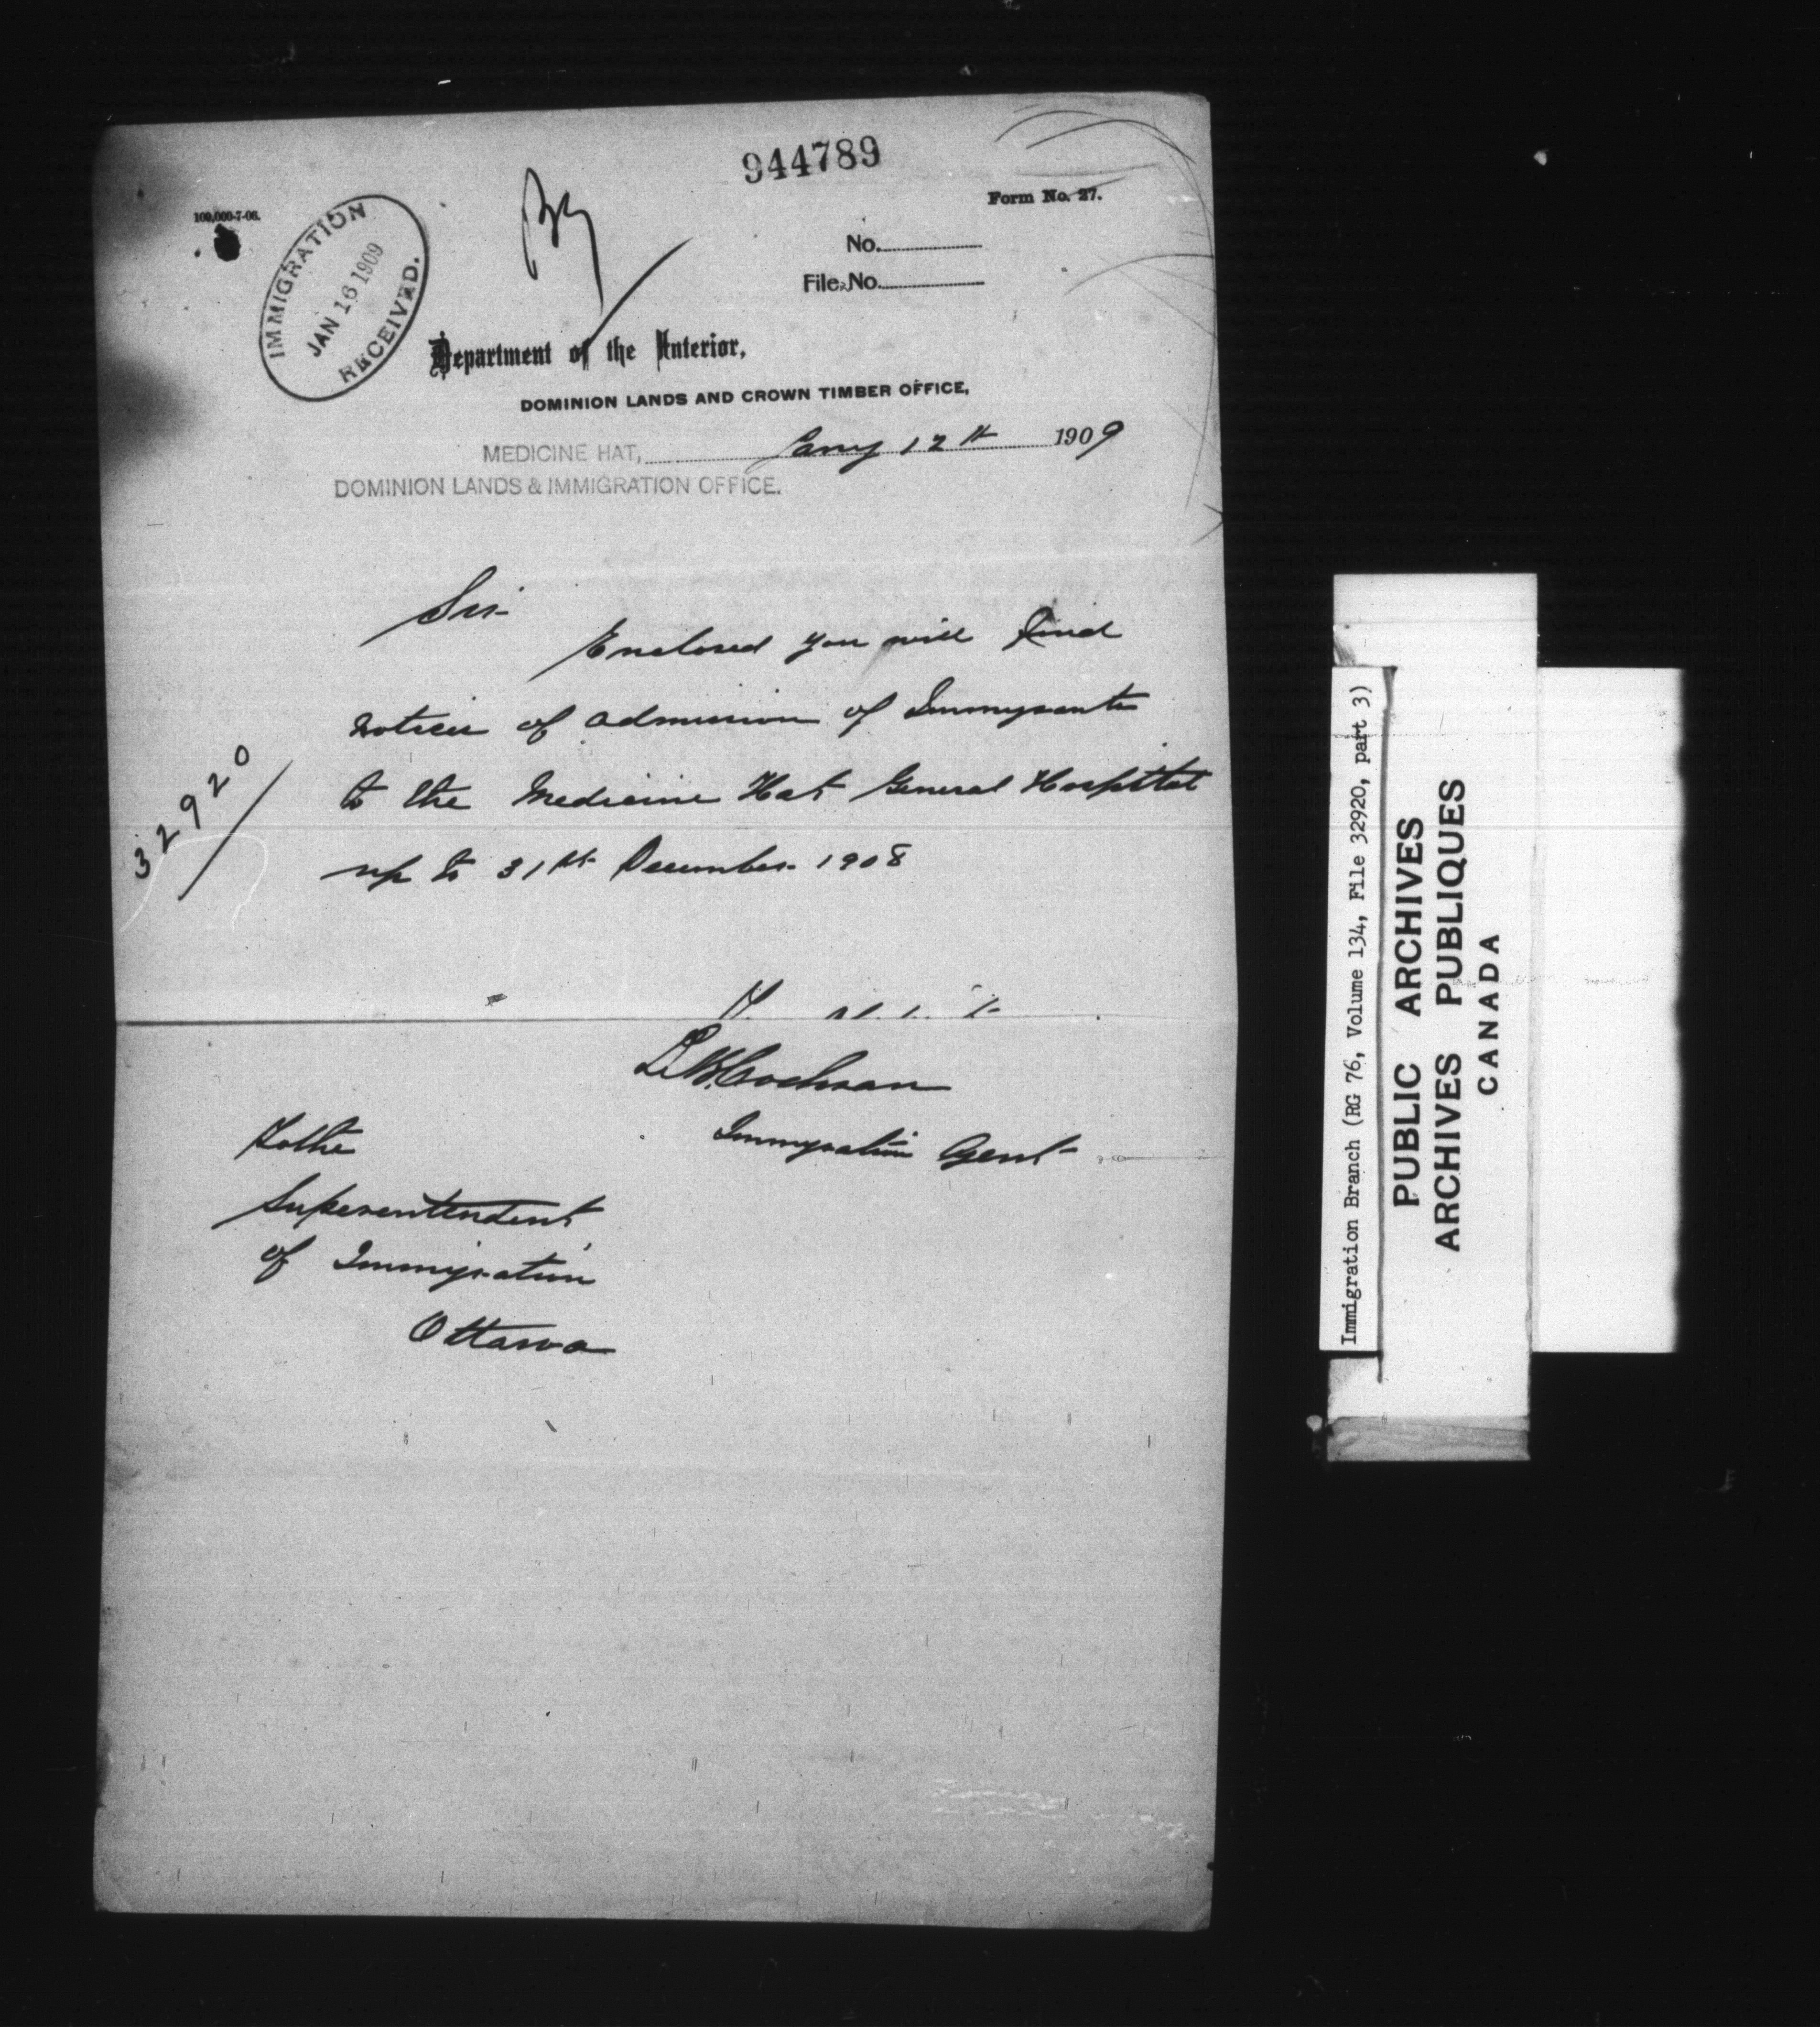 944789
100,000-7-06.
Form No. 27.
IMMIGRATION
JAN 16 1909
RECEIVED.
No.
File No.
Department of the Interior,
DOMINION LANDS AND CROWN TIMBER OFFICE,
MEDICINE HAT, Jany 12th 1909
DOMINION LANDS & IMMIGRATION OFFICE.
Sir
Enclosed you will find
notices of admission of Immigrants
to the Medicine Hat General Hospital
up to 31st December 1908
32920
Cochran
Immigration Agent
To the
Superentendent
of Immigration
Ottawa
Immigration Branch (RG 76, Volume 134, File 32920, part 3)
PUBLIC ARCHIVES
ARCHIVES PUBLIQUES
CANADA